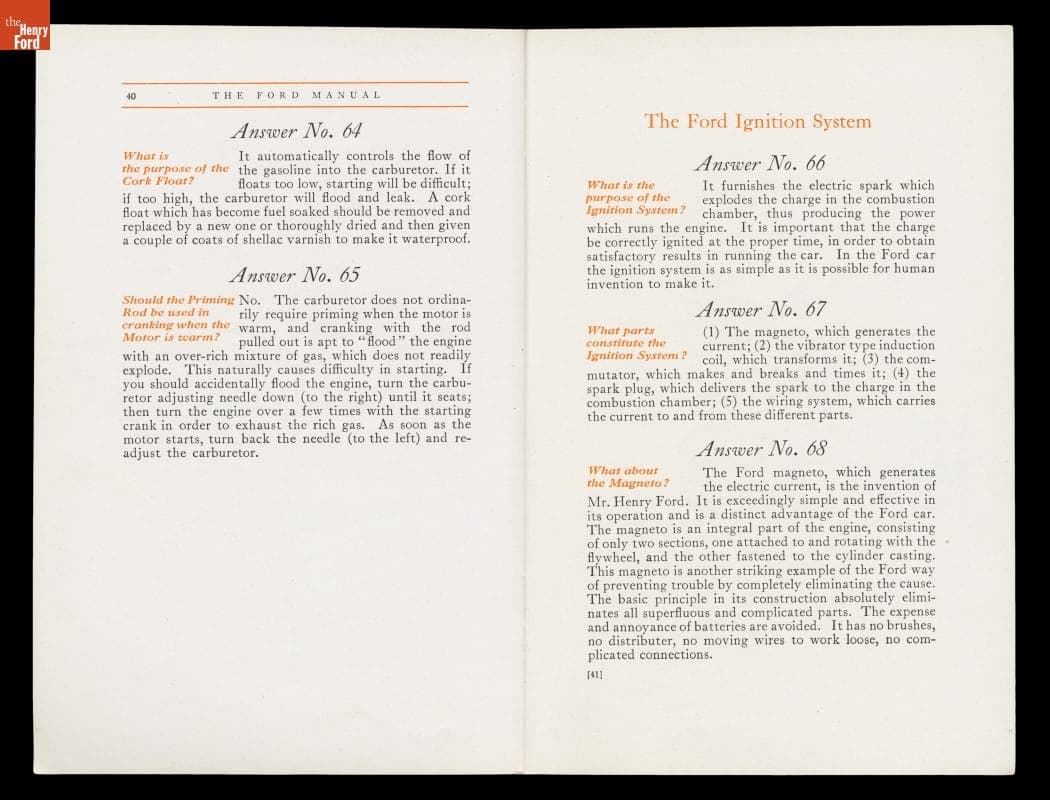 the
Henry
Ford
40 THE FORD MANUAL
Answer No. 64
What is
the purpose of the
Cork Float?
It automatically controls the flow of
the gasoline into the carburetor. If it
floats too low, starting will be difficult;
if too high, the carburetor will flood and leak. A cork
float which has become fuel soaked should be removed and
replaced by a new one or thoroughly dried and then given
a couple of coats of shellac varnish to make it waterproof.
Answer No. 65
Should the Priming
Rod be used in
cranking when the
Motor is warm?
No. The carburetor does not ordina-
rily require priming when the motor is
warm, and cranking with the rod
pulled out is apt to “flood” the engine
with an over-rich mixture of gas, which does not readily
explode. This naturally causes difficulty in starting. If
you should accidentally flood the engine, turn the carbu-
retor adjusting needle down (to the right) until it seats;
then turn the engine over a few times with the starting
crank in order to exhaust the rich gas. As soon as the
motor starts, turn back the needle (to the left) and re-
adjust the carburetor.
The Ford Ignition System
Answer No. 66
What is the
purpose of the
Ignition System?
It furnishes the electric spark which
explodes the charge in the combustion
chamber, thus producing the power
which runs the engine. It is important that the charge
be correctly ignited at the proper time, in order to obtain
satisfactory results in running the car. In the Ford car
the ignition system is as simple as it is possible for human
invention to make it.
Answer No. 67
What parts
constitute the
Ignition System?
(1) The magneto, which generates the
current; (2) the vibrator type induction
coil, which transforms it; (3) the com-
mutator, which makes and breaks and times it; (4) the
spark plug, which delivers the spark to the charge in the
combustion chamber; (5) the wiring system, which carries
the current to and from these different parts.
Answer No. 68
What about
the Magneto?
The Ford magneto, which generates
the electric current, is the invention of
Mr. Henry Ford. It is exceedingly simple and effective in
its operation and is a distinct advantage of the Ford car.
The magneto is an integral part of the engine, consisting
of only two sections, one attached to and rotating with the
flywheel, and the other fastened to the cylinder casting.
This magneto is another striking example of the Ford way
of preventing trouble by completely eliminating the cause.
The basic principle in its construction absolutely elimi-
nates all superfluous and complicated parts. The expense
and annoyance of batteries are avoided. It has no brushes,
no distributer, no moving wires to work loose, no com-
plicated connections.
[41]